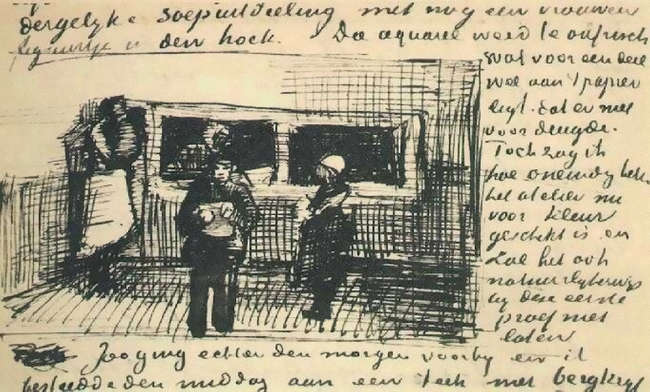 dergelyke soepuitdeeling met nog een vrouwen
figuurtje in den hoek. De aquarel werd te onfrisch
wat voor een deel
wel aan 't papier
ligt. dat er niet
voor deugde.
Toch zag ik
hoe oneindig beter
het atelier nu
voor kleur
geschikt is en
zal het ook
natuurlykerwys
by deze eerste
proef niet
laten
Zoo ging echter den morgen voorby en ik
besteedde den middag aan een teek. met bergkryt